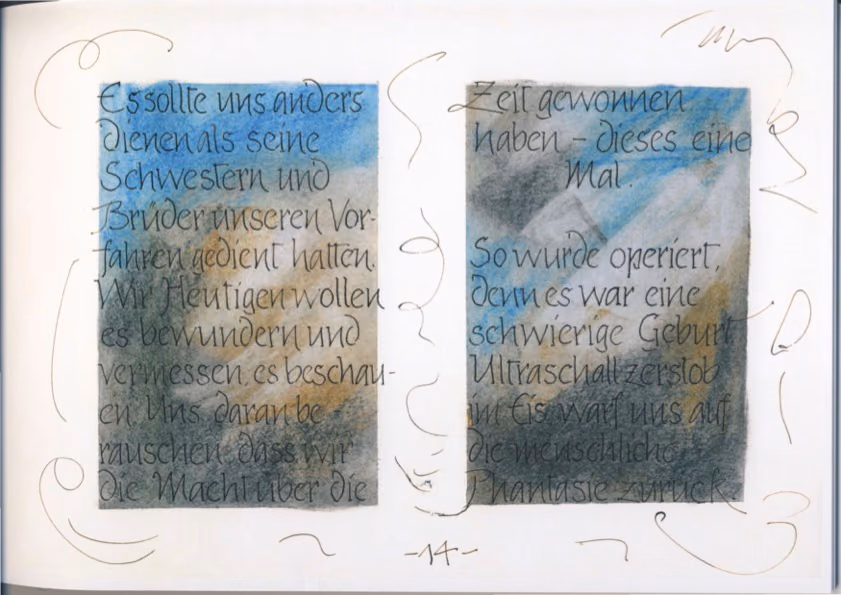 Es sollte uns anders
dienen als seine
Schwestern und
Brüder unseren Vor-
fahren gedient hatten.
Wir Heutigen wollen
es bewundern und
vermessen, es beschau-
en. Uns daran be
rauschen, dass wir
die Macht über die
Zeit gewonnen
haben – dieses eine
Mal.
So wurde operiert,
denn es war eine
schwierige Geburt.
Ultraschall zerstob
im Eis, warf uns auf
die menschliche
Phantasie zurück.
-14-